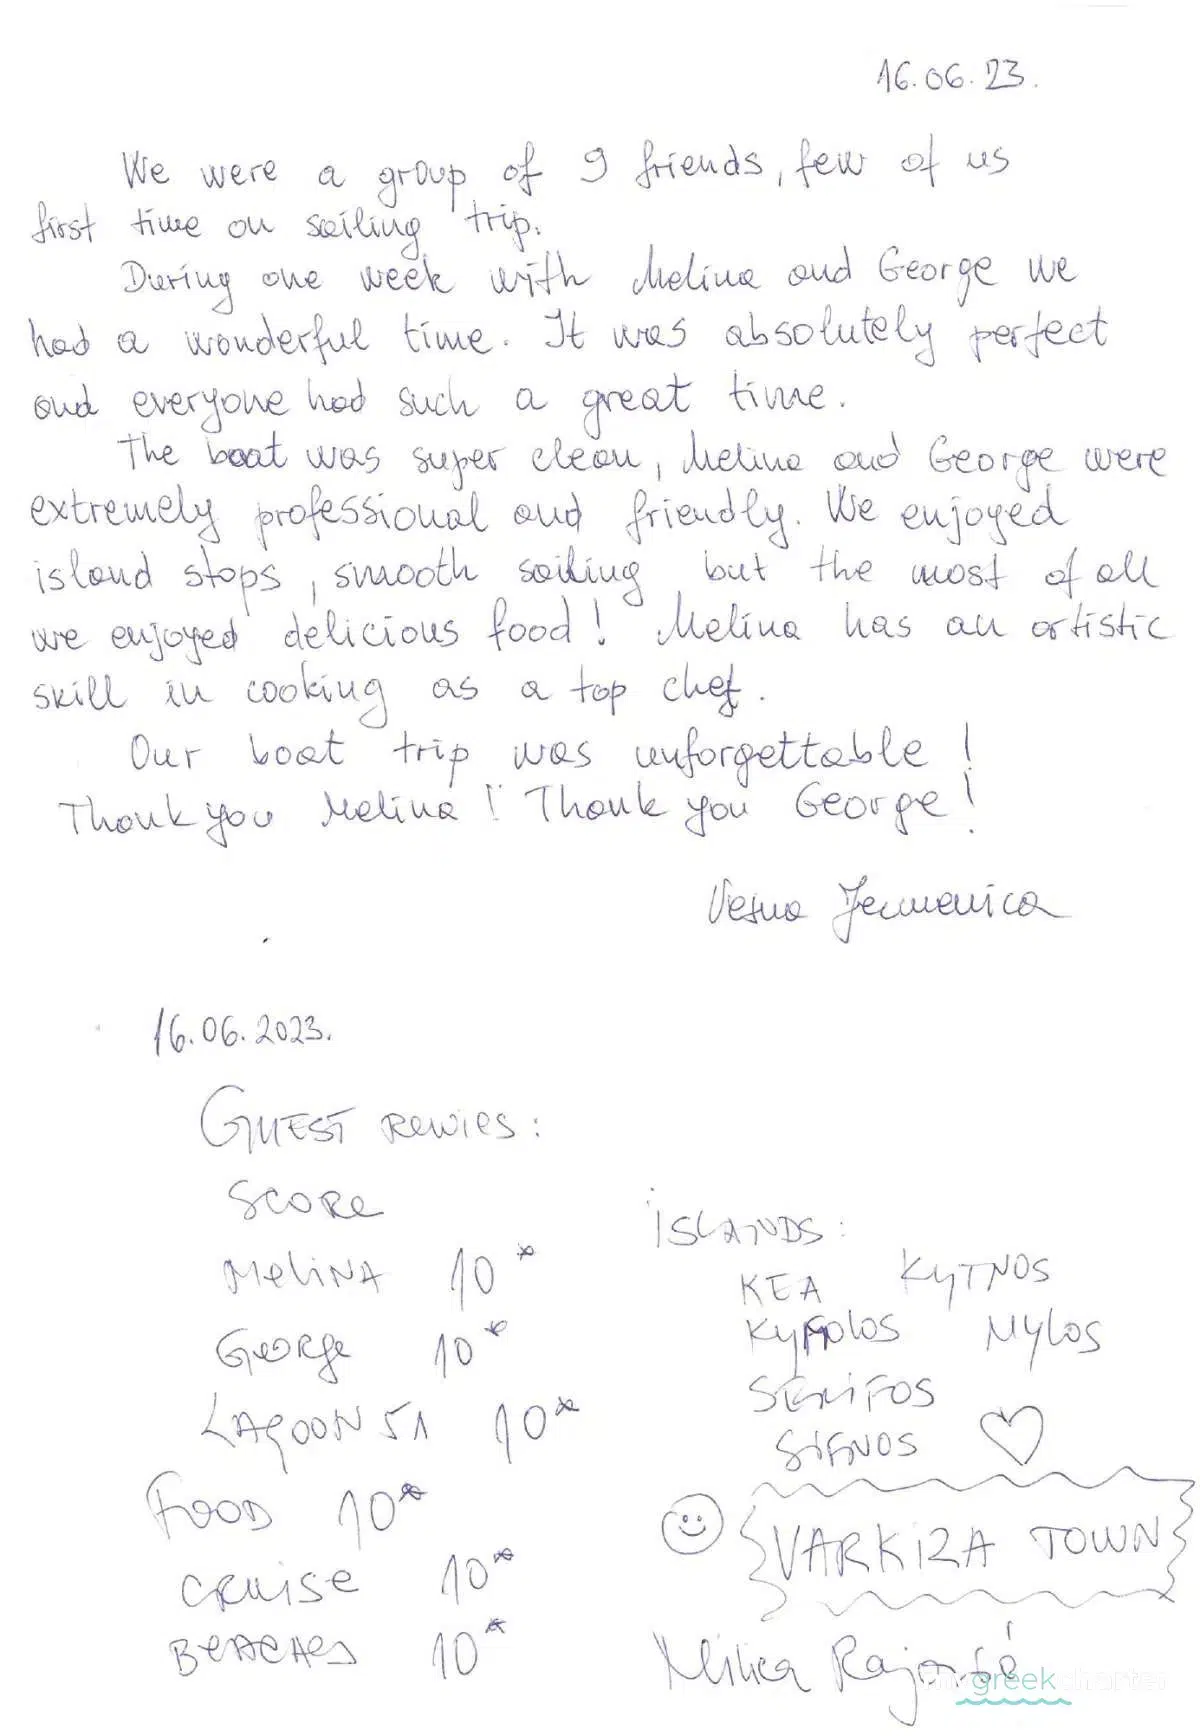 16.06.23.
We were a group of 9 friends, few of us
first time on sailing trip.
During one week with Melina and George we
had a wonderful time. It was absolutely perfect
and everyone had such a great time.
The boat was super clean, Melina and George were
extremely professional and friendly. We enjoyed
island stops, smooth sailing but the most of all
we enjoyed delicious food! Melina has an artistic
skill in cooking as a top chef.
Our boat trip was unforgettable!
Thank you Melina! Thank you George!
Vesna Jermenica
16.06.2023.
GUEST REWIES:
SCORE
MELINA 10*
GEORGE 10*
LAGOON 51 10*
FOOD 10*
CRUISE 10*
BEACHES 10*
ISLANDS:
KEA KYTNOS
MYLOS
SERIFOS
SIFNOS
VARKIZA TOWN
Milica
greekcharter